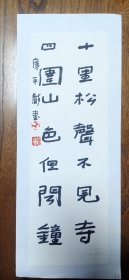 十里松聲不見寺
四圍山色但聞鐘